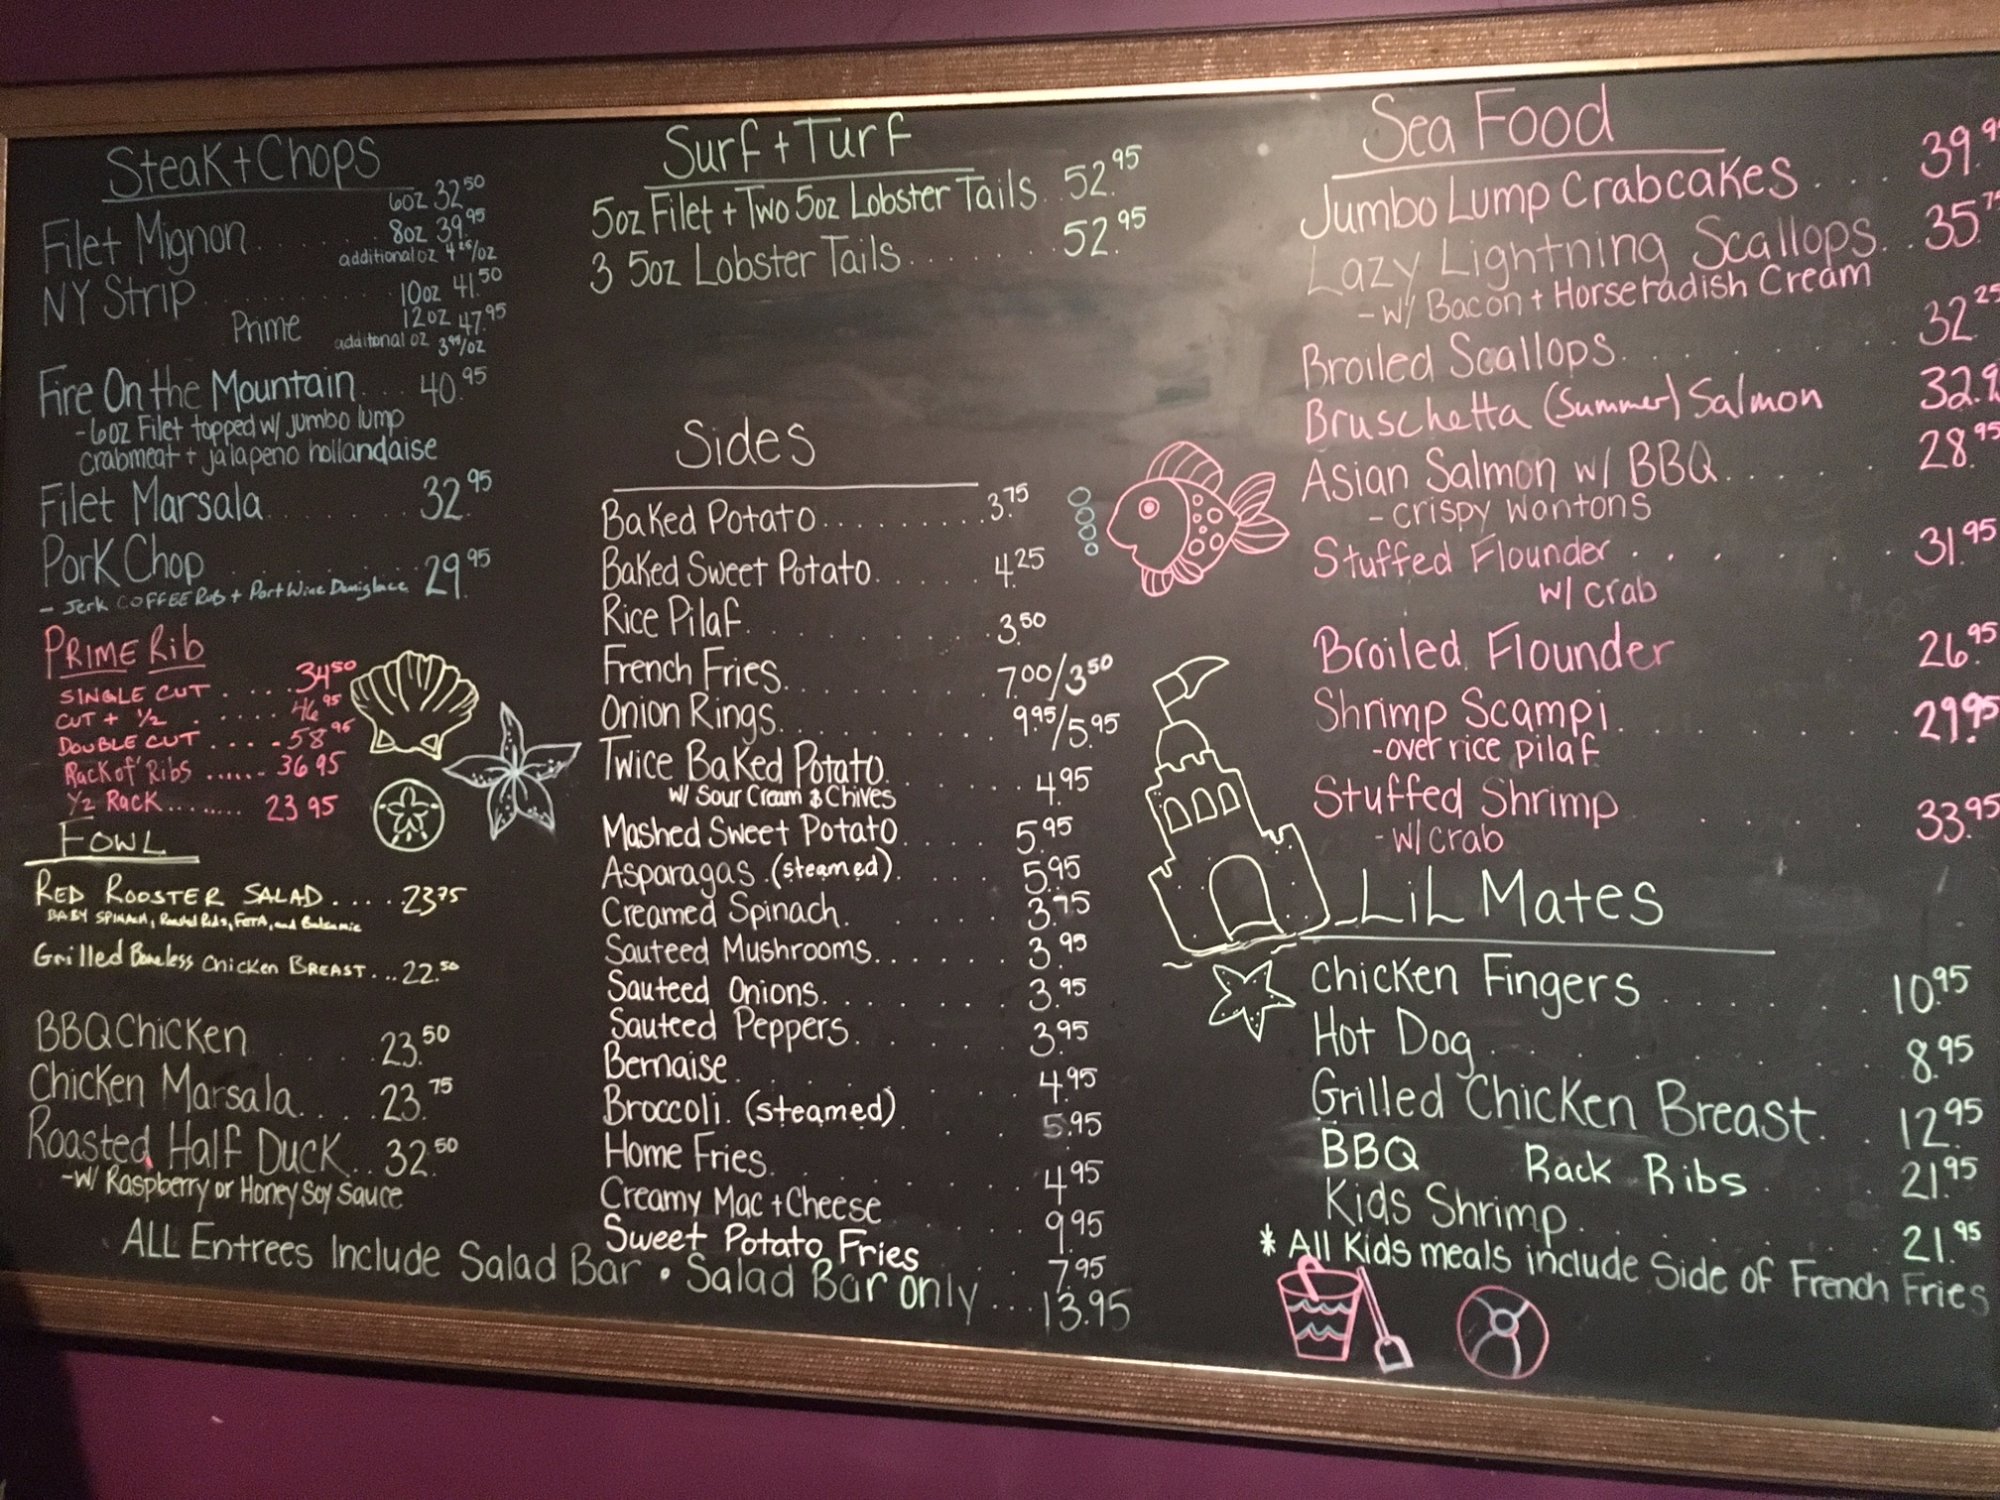 Steak + Chops
6oz 32.50
Filet Mignon......... 8oz 39.95
additional oz 4.25/oz
NY Strip............ 10oz 41.50
Prime 12oz 47.95
additional oz /oz
Fire On the Mountain.... 40.95
-6oz Filet topped w/ jumbo lump
crabmeat + jalapeno hollandaise
Filet Marsala......... 32.95
Pork Chop............ 29.95
- Jerk COFFEE Rub + Port Wine Demiglace
PRIME Rib
SINGLE CUT.....34.50
CUT + 1/2.......46.95
DOUBLE CUT.....58.95
Rack of Ribs.......36.95
1/2 RACK........23.95
FOWL
RED ROOSTER SALAD.....23.75
BABY SPINACH, Roasted Reds, FETA, and Balsamic
Grilled Boneless Chicken BREAST...22.50
BBQ Chicken......23.50
Chicken Marsala.....23.75
Roasted Half Duck...32.50
-w/ Raspberry or Honey Soy Sauce
Surf + Turf
5oz Filet + Two 5oz Lobster Tails..52.95
3 5oz Lobster Tails........52.95
Sides
Baked Potato..........3.75
Baked Sweet Potato......4.25
Rice Pilaf...........3.50
French Fries.........7.00/3.50
Onion Rings.........9.95/5.95
Twice Baked Potato......4.95
w/ Sour Cream & Chives
Mashed Sweet Potato.....5.95
Asparagas.(steamed).....5.95
Creamed Spinach......3.75
Sauteed Mushrooms......3.95
Sauteed Onions........3.95
Sauteed Peppers.......3.95
Bernaise..........4.95
Broccoli.(steamed)....5.95
Home Fries.........4.95
Creamy Mac + Cheese....9.95
Sweet Potato Fries...7.95
ALL Entrees Include Salad Bar • Salad Bar only...13.95
Sea Food
Jumbo Lump Crabcakes....39.9
Lazy Lightning Scallops..35.7
-w/ Bacon + Horseradish Cream
Broiled Scallops........32.25
Bruschetta (Summer) Salmon 32.9
Asian Salmon w/ BBQ......28.95
- crispy wontons
Stuffed Flounder.......31.95
w/ crab
Broiled Flounder 26.95
Shrimp Scampi........29.95
-over rice pilaf
Stuffed Shrimp......33.95
-w/crab
LiL Mates
Chicken Fingers.......10.95
Hot Dog..........8.95
Grilled Chicken Breast...12.95
BBQ Rack Ribs....21.95
Kids Shrimp.........21.95
* All Kids meals include Side of French Fries